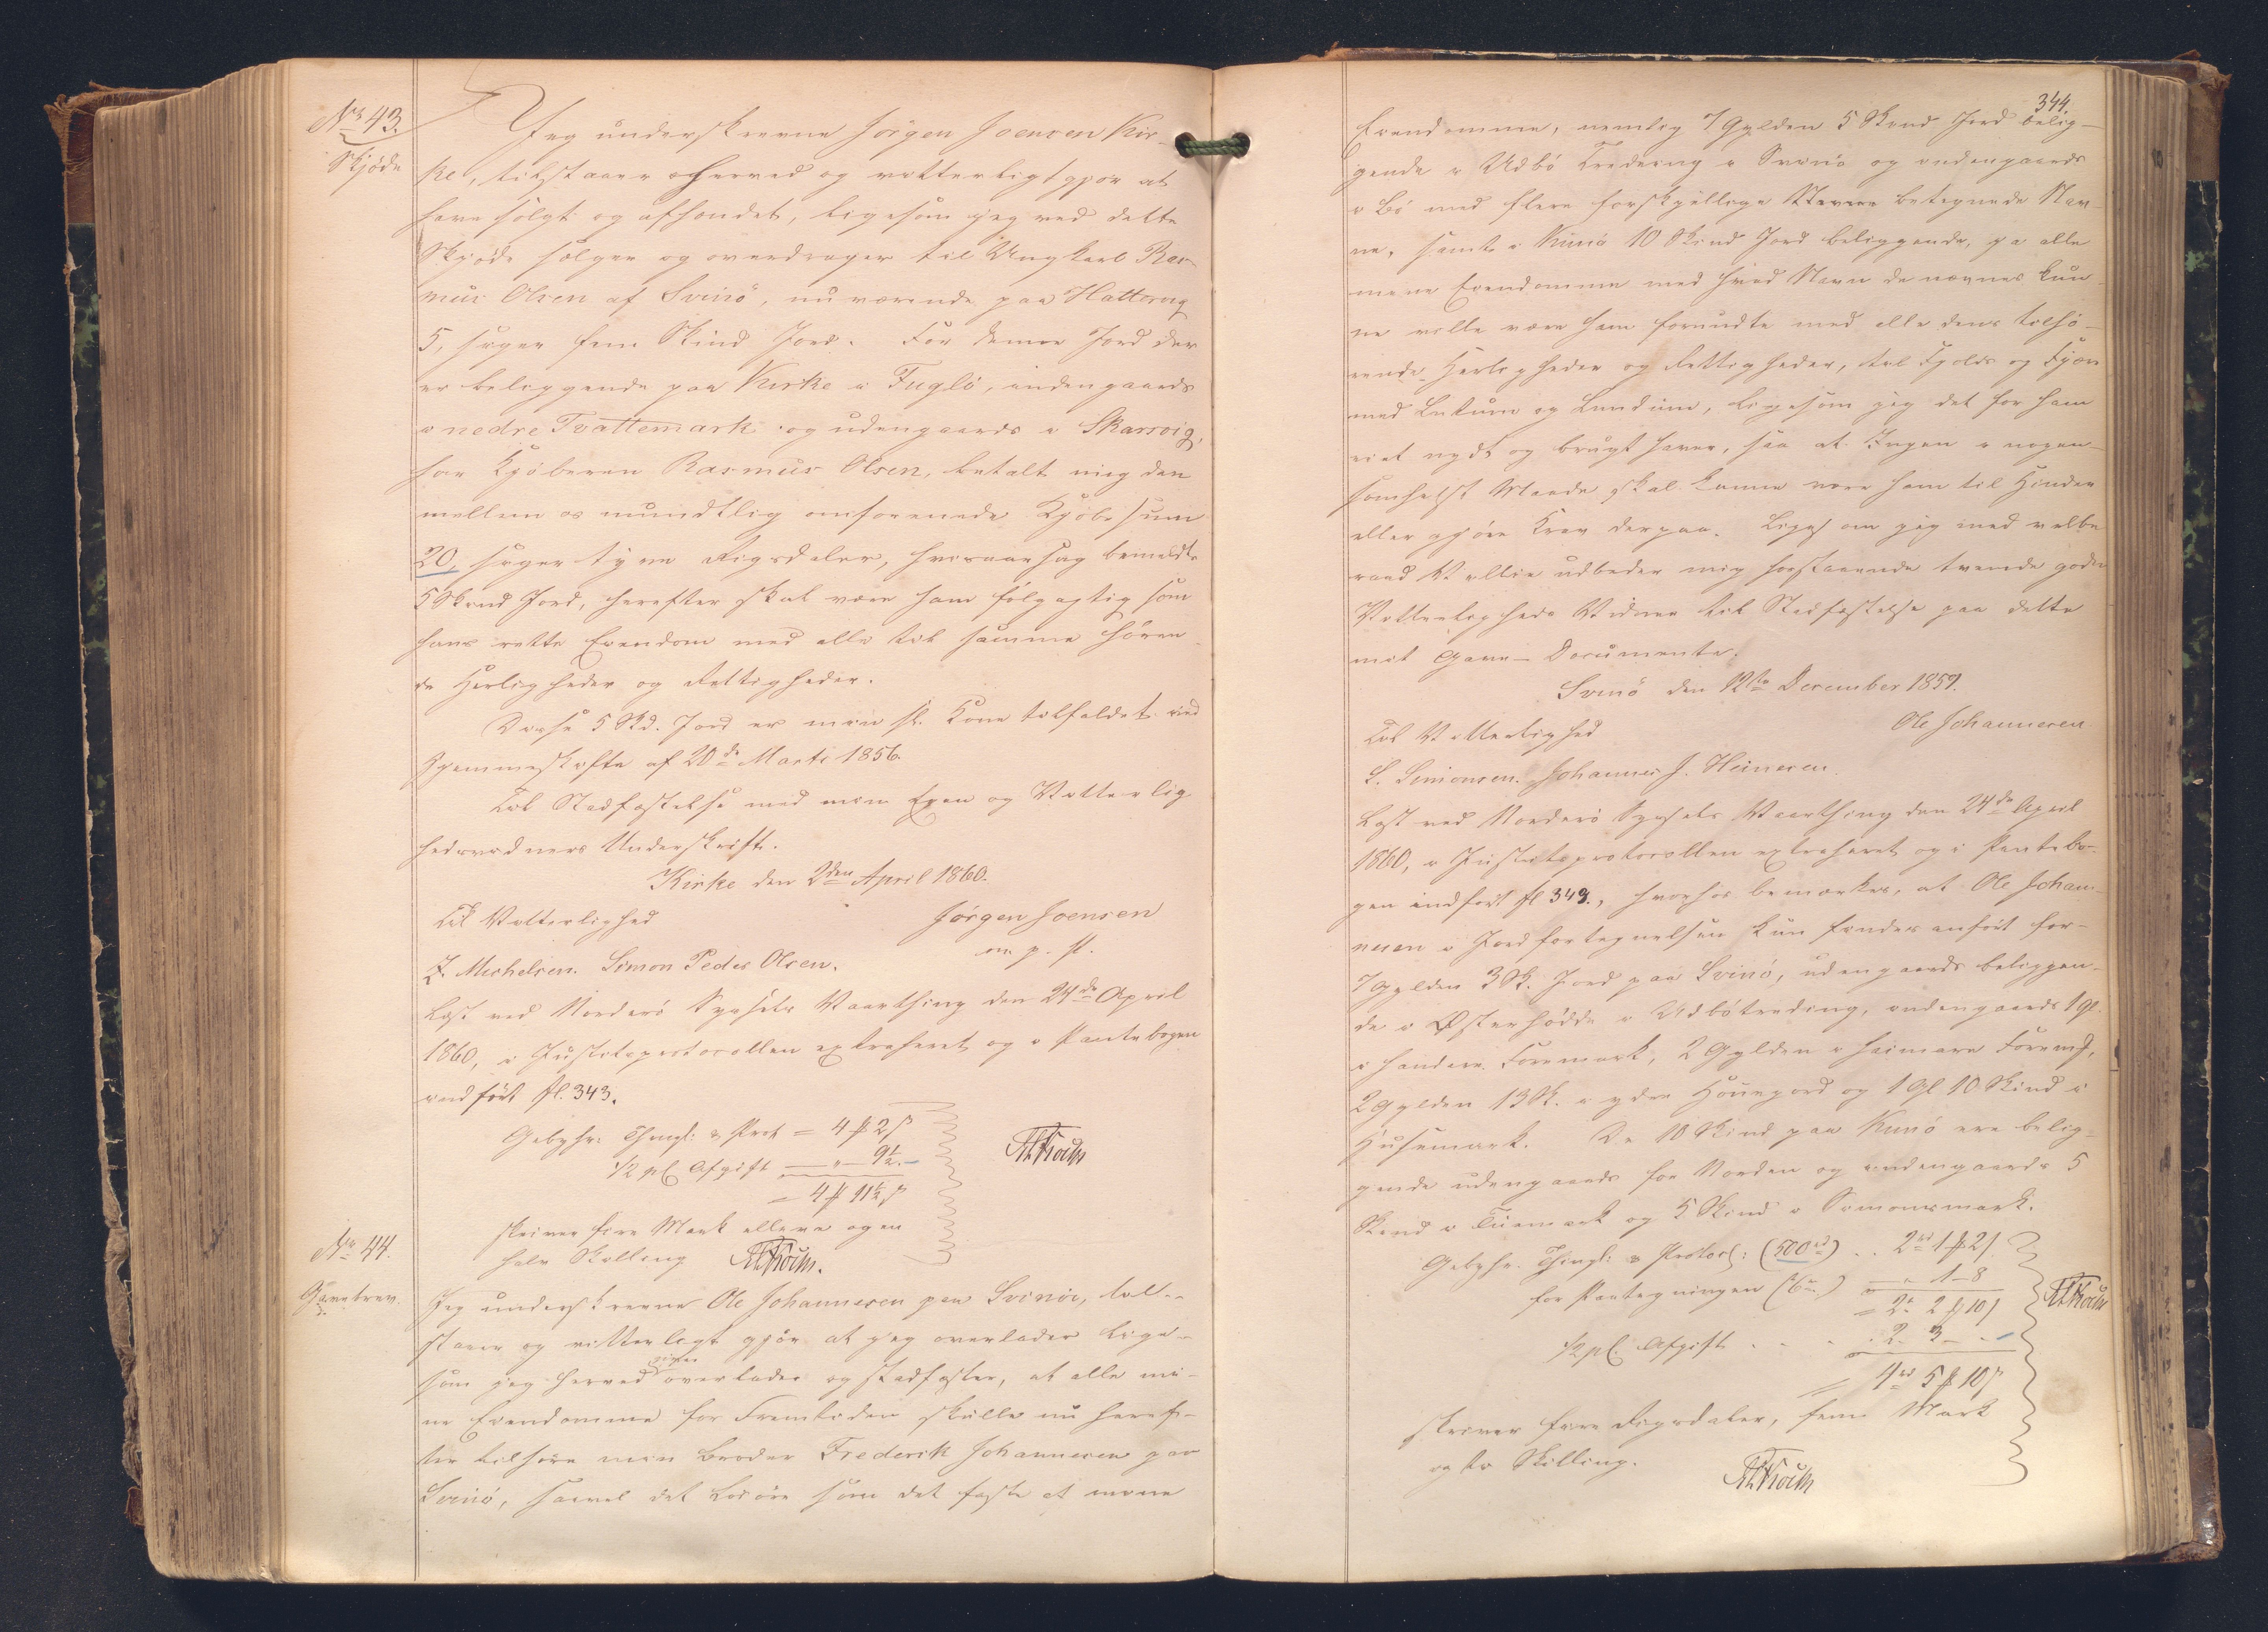 No 43.
Skjöde
Jeg underskrevne Jörgen Joensen Kir-
ke, tilstaaer herved og vitterligtgjør at
have solgt og afhændet, ligesom jeg ved dette
Skjöde sælger og overdrager til Ungkarl Ras-
mus Olsen af Svinö, nu værende paa Hattervig
5, siger fem Skind Jord. For denne Jord der
er beliggende paa Kirke i Fuglö, indengaards
i nedre Tvattemark og udengaards i Skarsvig,
har Kjöberen Rasmus Olsen, betalt mig den
mellem os mundtlig omforenede Kjöbesum
20, siger tyve Rigsdaler, hvisaarsag bemeldte
5 Skind Jord, herefter skal være ham følgagtig som
hans rette Eiendom med alle til samme hören-
de Herligheder og Rettigheder.
Disse 5 Skd. Jord er min sl. Kone tilfaldet ved
Hjemmeskifte af 20de Marts 1856.
Til Stadfæstelse med min Egen og Vitterlig
hedsvidners Underskrift.
Kirke den 2den April 1860.
Til Vitterlighed
Jörgen Joensen
m. p. P.
Z. Michelsen. Simon Peder Olsen.
Læst ved Norderö Syssels Vaarthing den 24de April
1860, i Justitsprotocollen extraheret og i Pantebogen
indført fl. 343.
Gebyhr: Thingl: & Prot = 4 ₰ 2 ß
1/2 pC Afgift — " — 9½ -
= 4 ₰ 11½ ß
skriver fire Mark elleve og en
halv Skilling
HKoch.
HKoch
No 44.
Gavebrev.
Jeg underskrevne Ole Johannesen paa Svinöe, til-
staaer og vitterligt gjör at jeg overlader lige-
som jeg herved giver overlader og stadfæster, at alle mi-
ne Eiendomme for Fremtiden skulle nu heref-
ter tilhöre min Broder Frederik Johannesen paa
Svinö, saavel det Lösöre som det faste af mine
344.
Eiendomme, nemlig 7 Gylden 5 Skind Jord belig-
gende i Udbö Treding i Svinö og indengaards
i Bö med flere forskjellige Steder betegnede Nav-
ne, samt i Kunö 10 Skind Jord beliggende, ja alle
mine Eiendomme med hvad Navn de nævnes kun-
ne ville være ham forundte med alle dens tilhö-
rende Herligheder og Rettigheder, til Fjelds og Fjære
med Luttum og Lundum, ligesom jeg det for ham
eiet nydt og brugt haver, saa at Ingen i nogen-
somhelst Maade skal kunne være ham til Hinder
eller gjöre Krav derpaa. Ligesom jeg med velbe
raad Villie udbeder mig hosstaaende tvende gode
Vitterligheds Vidner til Stadfæstelse paa dette
mit Gave- Documente.
Svinö den 12te December 1859.
Ole Johannesen
Til Vitterlighed
S. Simonsen. Johannes J. Heinesen.
Læst ved Norderö Syssels Vaarthing den 24de April
1860, i Justitsprotocollen extraheret og i Pantebo-
gen indført fl 343., hvorhos bemærkes, at Ole Johan-
nesen i Jordfortegnelsen kun findes anført for
7 Gylden 3 Sk. Jord paa Svinö, udengaards beliggen-
de i Østerhödde i Udbötreding, indengaards 1 Gl.
i handare Foremark, 2 Gylden i heimare Foremk,
2 Gylden 13 Sk. i ydre Hönejord og 1 Gl 10 Skind i
Husemark. De 10 Skind paa Kunö ere belig-
gende udengaards for Norden og indengaards 5
Skind i Tuemark og 5 Skind i Simonsmark.
Gebyhr. Thingl: & Protocl: (500 rd) . . 2 rd 1 ₰ 2 ß
for Paategningen (16 ß) — " 1 - 8
= 2 rd 2 ₰ 10 ß
1/2 pC. Afgift . . . . 2. 3 - . -
= 4 rd 5 ₰ 10 ß
skriver fire Rigsdaler, fem Mark
og ti Skilling.
HKoch
HKoch